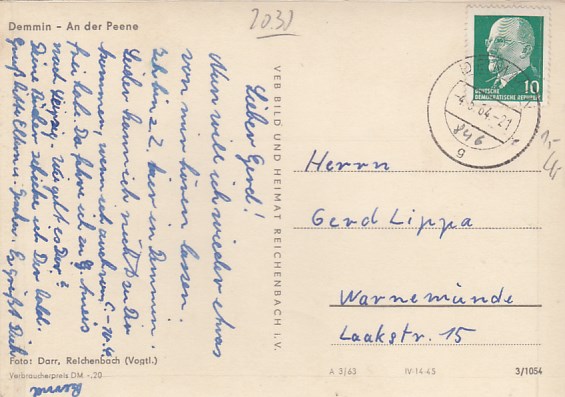 2030
Demmin – An der Peene
Lieber Gerd!
Nun will ich wieder etwas
von mir hören lassen.
Ich bin z. Z. hier in Demmin.
Leider kann ich nicht zu Dir
kommen, wenn ich auch vom 6.-10.4.
frei hab. Da fahre ich zu G.
nach Leipzig. Wie geht es Dir?
Deine Bilder schicke ich Dir dabei.
Gruß bitte Eltern u. Es grüßt Dich
Bernd
VEB BILD UND HEIMAT REICHENBACH I. V.
10
DEUTSCHE
DEMOKRATISCHE REPUBLIK
64.-21
846
g
15,-
Herrn
Gerd Lippa
Warnemünde
Laakstr. 15
Foto: Darr, Reichenbach (Vogtl.)
Verbraucherpreis DM -.20
A 3/63
IV-14-45
3/1054